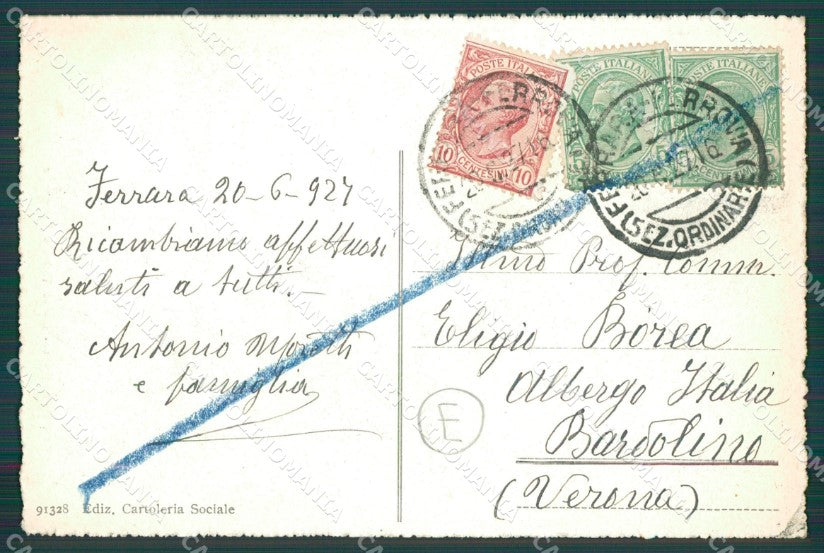 Ferrara 20-6-927
Ricambiamo affettuosi
saluti a tutti.-
Antonio Moretti
e famiglia
91328 Ediz. Cartoleria Sociale
POSTE ITALIANE
10 CENTESIMI 10
POSTE ITALIANE
POSTE ITALIANE
FERRARA-FERROVIA
(SEZ. ORDINARIE)
Illmo Prof. Comm.
Eligio Borea
Albergo Italia
Bardolino
(Verona)
E
CARTOLINOMANIA